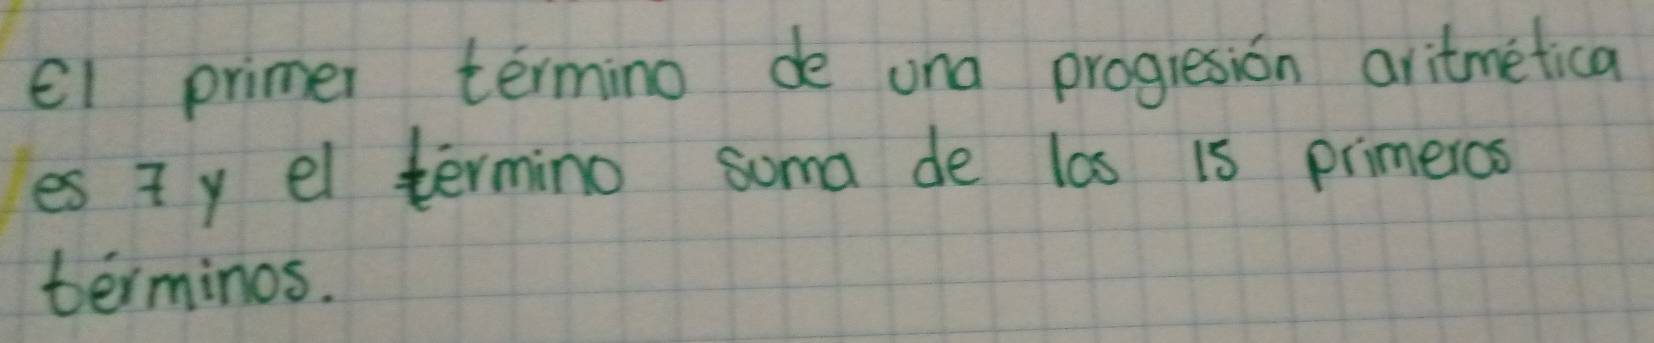 El primer término de una progresión aritmética
es 7 y el término suma de los 15 primeros
términos.